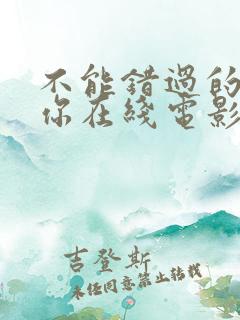 不能错過的
你在綫電影
吉登斯
未任同意禁止转载